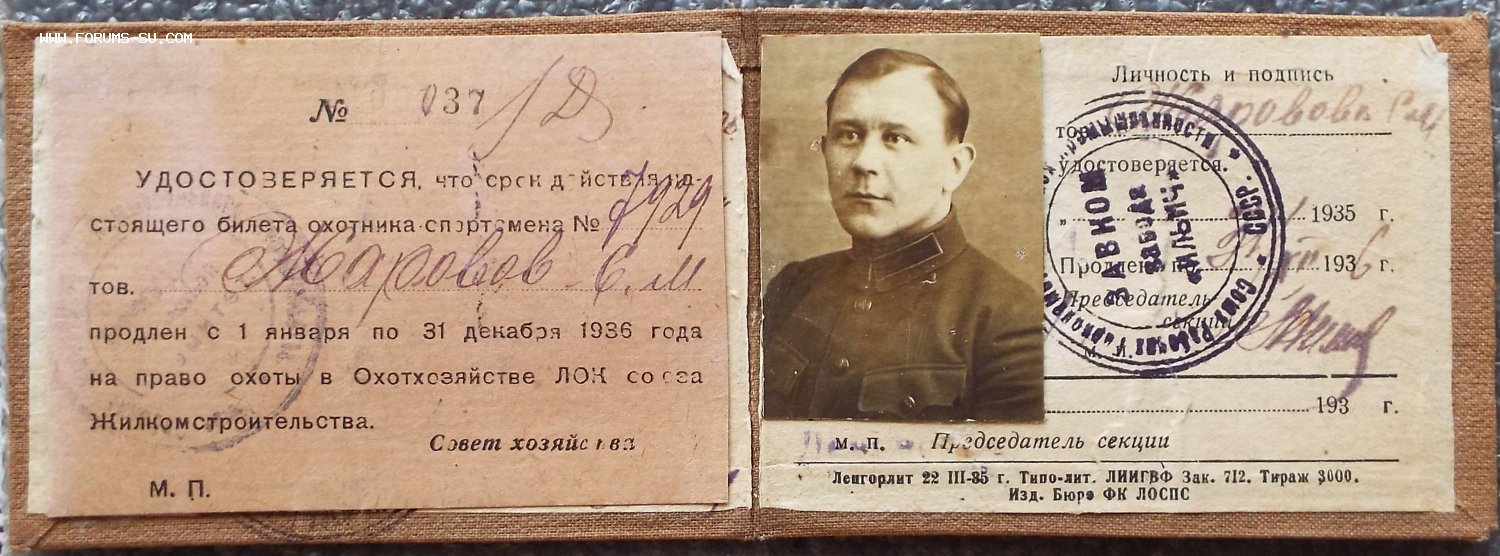 www.forums-su.com
№ 037
УДОСТОВЕРЯЕТСЯ, что срок действия на-
стоящего билета охотника-спортсмена № 7929
тов. Жаровов С. М
продлен с 1 января по 31 декабря 1936 года
на право охоты в Охотхозяйстве ЛОК союза
Жилкомстроительства.
Совет хозяйства
М. П.
Личность и подпись
тов. Жаровова
удостоверяется.
1935 г.
Продлен по 1936 г.
Председатель
секции
М. П.
193 г.
М. П. Председатель секции
Ленгорлит 22 III-35 г. Типо-лит. ЛИИГВФ Зак. 712. Тираж 3000.
Изд. Бюро ФК ЛОСПС
ЗАВКОМ
ЗАВОДА
«ИЛЬИЧ»
Союз Рабочих промышленности * СССР. *